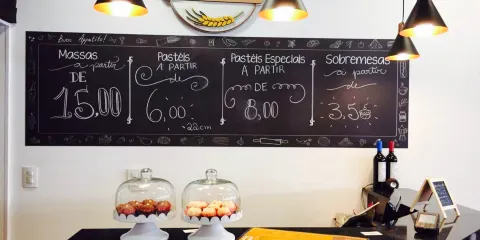 Buon Appetito!
Massas
a partir
DE
15,00
Pastéis
A PARTIR
de
6,00
22cm
Pastéis Especiais
A PARTIR
DE
8,00
Sobremesas
a partir
de
3,50